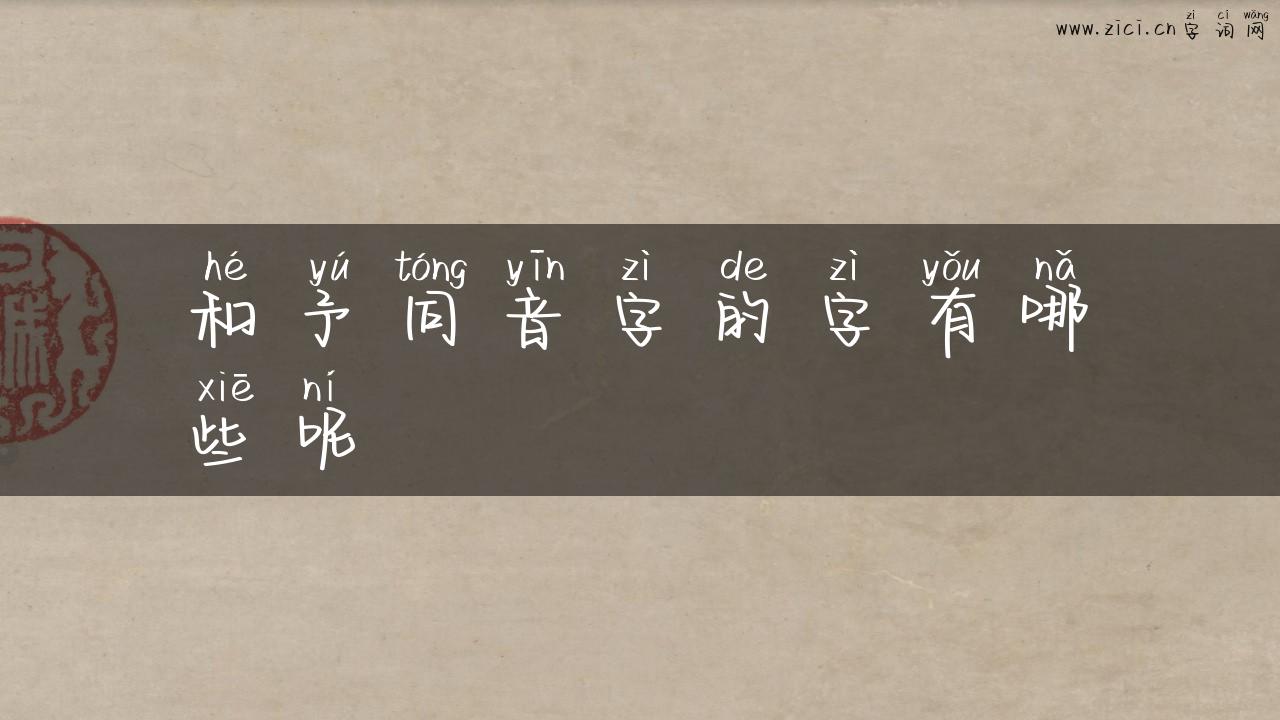 zì cí wǎng
www.zici.cn 字词网
hé yú tóng yīn zì de zì yǒu nǎ
和予同音字的字有哪
xiē ní
些呢